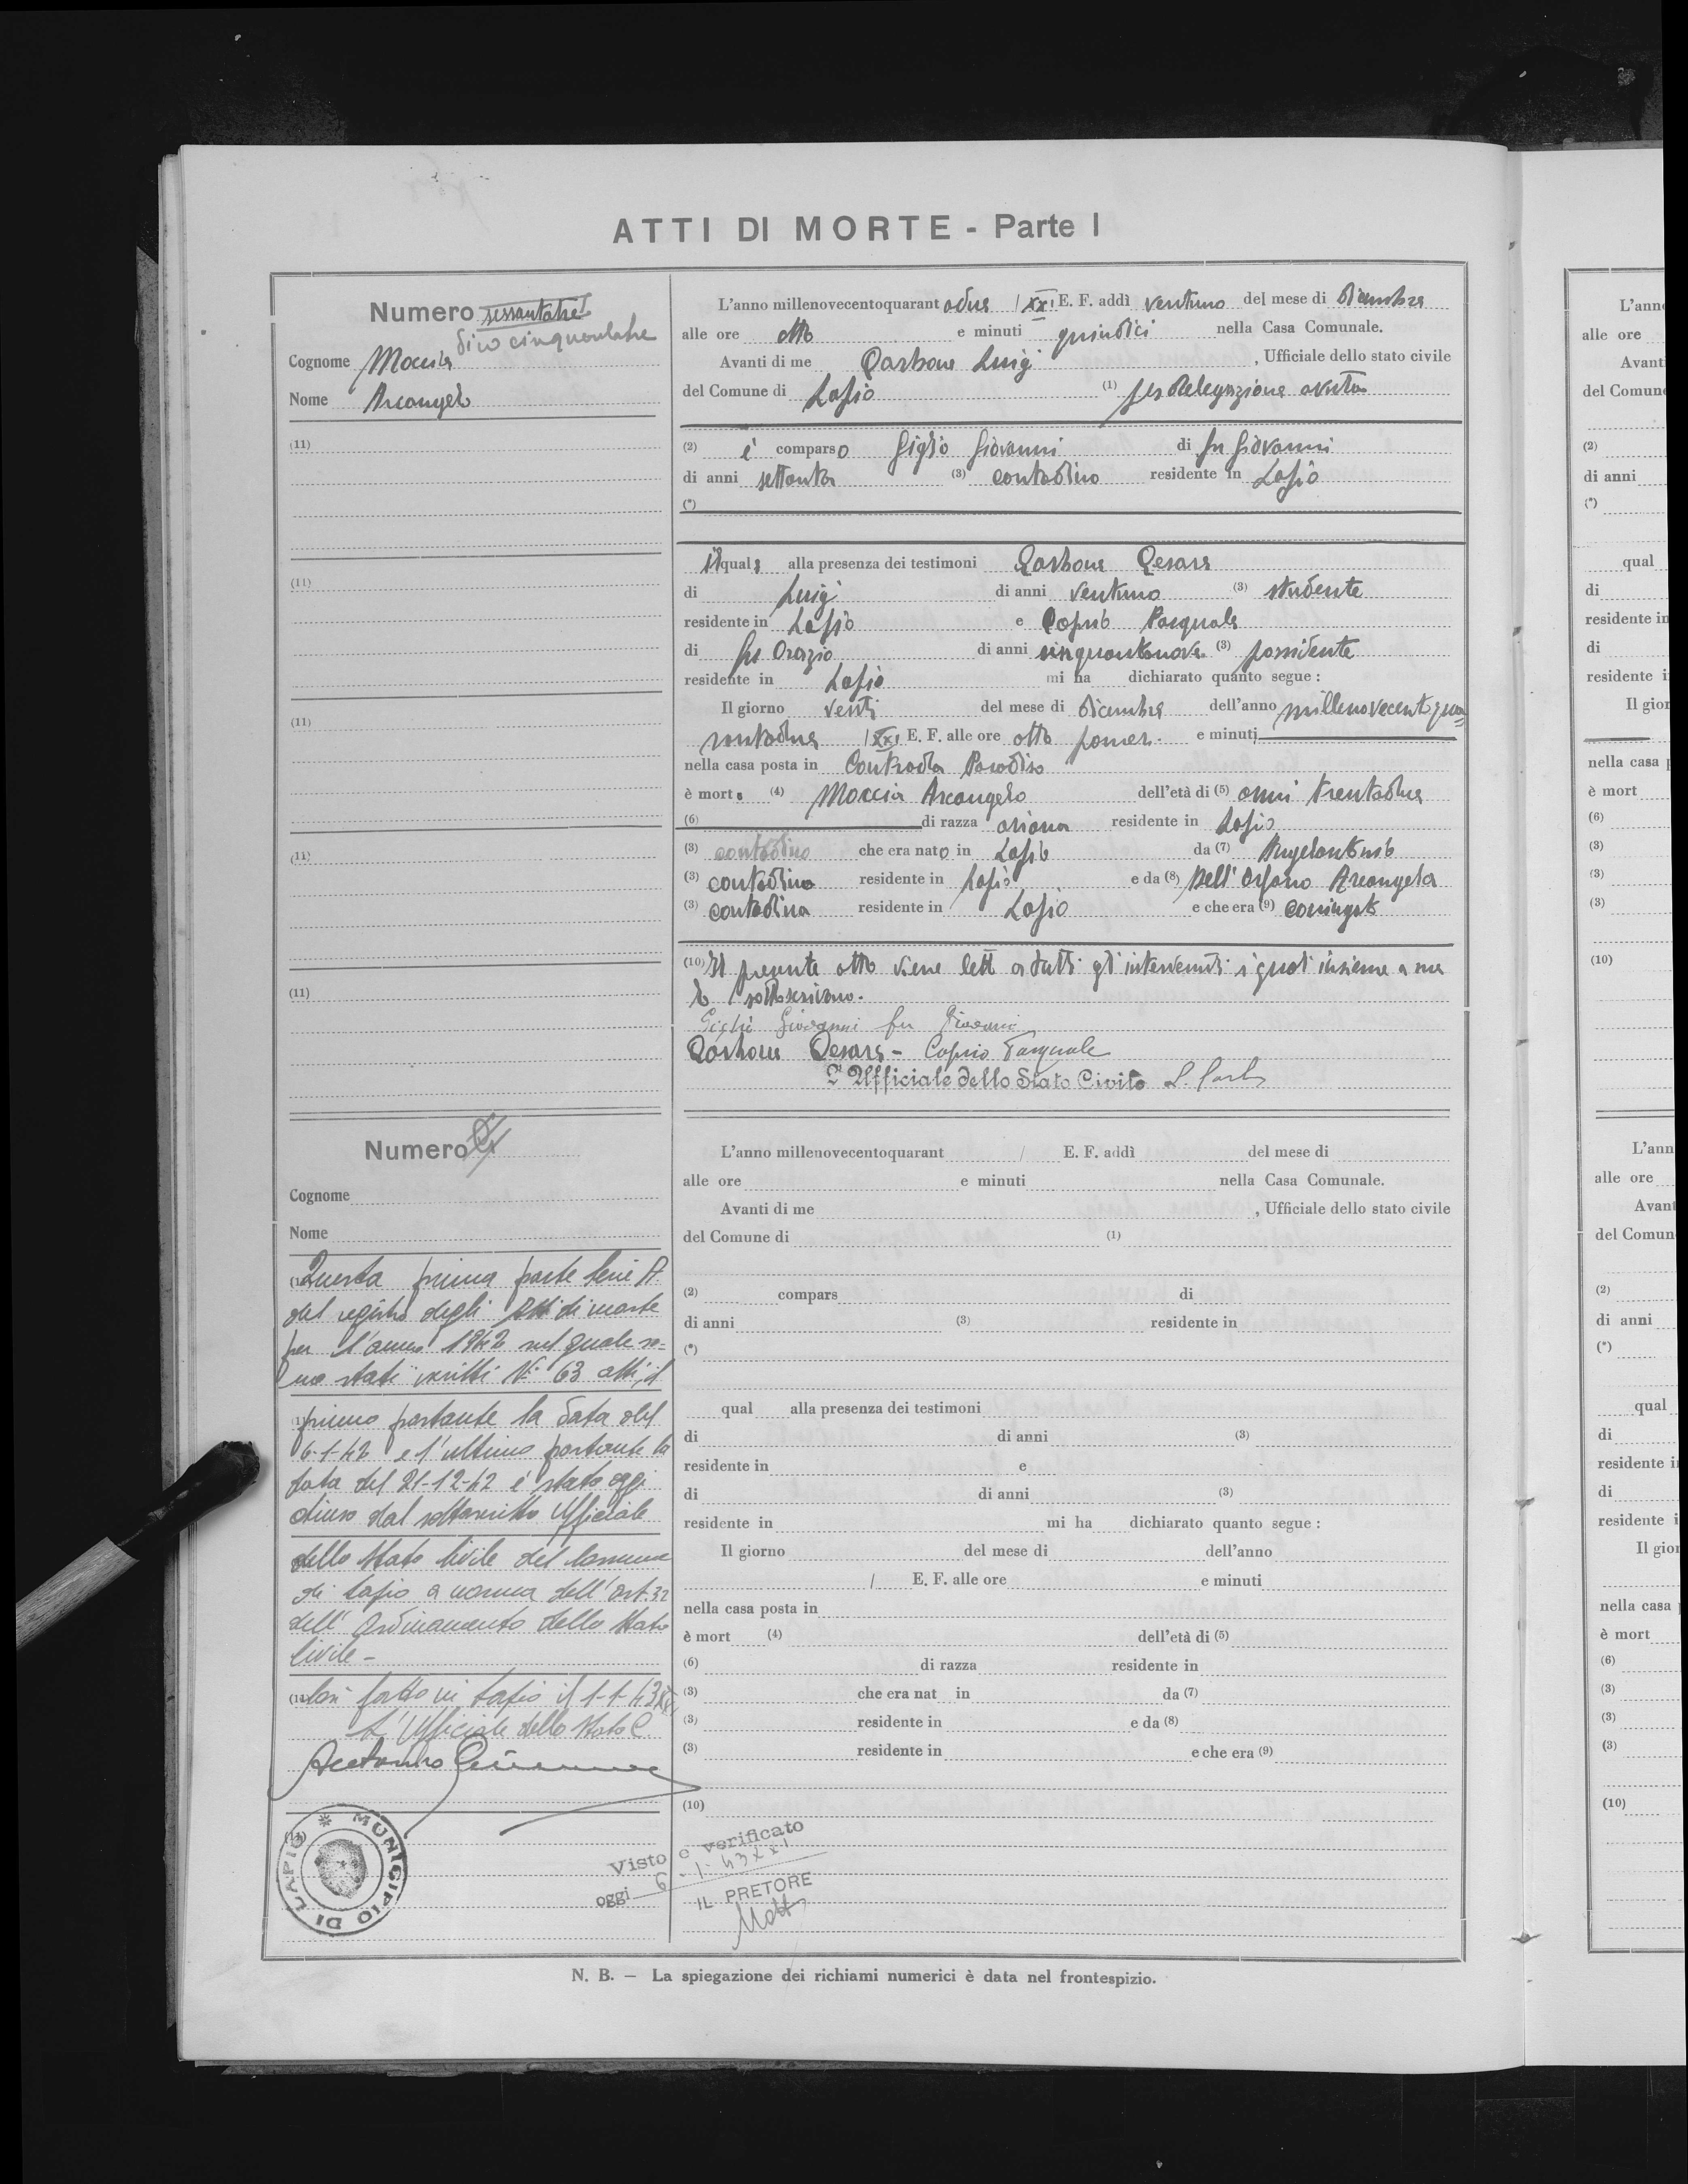 ATTI DI MORTE - Parte I
Numero sessantatre
dico cinquantatre
Cognome Moccia
Nome Arcangelo
(11)
(11)
(11)
(11)
(11)
L'anno millenovecentoquarantadue / XXI E. F. addì ventuno del mese di dicembre
alle ore otto e minuti quindici nella Casa Comunale.
Avanti di me Carbone Luigi, Ufficiale dello stato civile
del Comune di Lapio (1) per delegazione avuta
(2) è comparso Giglio Giovanni di fu Giovanni
di anni settanta (3) contadino residente in Lapio
(*)
il quale alla presenza dei testimoni Carbone Cesare
di Luigi di anni ventuno (3) studente
residente in Lapio e Caprio Pasquale
di fu Orazio di anni cinquantanove (3) possidente
residente in Lapio mi ha dichiarato quanto segue :
Il giorno venti del mese di dicembre dell'anno millenovecentoqua=
rantadue / XXI E. F. alle ore otto pomer. e minuti
nella casa posta in Contrada Paradiso
è morto (4) Moccia Arcangelo dell'età di (5) anni trentadue
(6) di razza ariana residente in Lapio
(3) contadino che era nato in Lapio da (7) Angelantonio
(3) contadino residente in Lapio e da (8) Dell'Orfano Arcangela
(3) contadina residente in Lapio e che era (9) coniugato
(10) Il presente atto viene letto a tutti gli intervenuti i quali insieme a me
lo sottoscrivono.
Giglio Giovanni fu Giovanni
Carbone Cesare - Caprio Pasquale
L'Ufficiale dello Stato Civile L. Carb
Numero
Cognome
Nome
Questa prima parte serie A
del registro degli Atti di morte
per l'anno 1942 nel quale so=
no stati iscritti N. 63 atti, il
primo portante la data del
6-1-42 e l'ultimo portante la
data del 21-12-42 è stato oggi
chiuso dal sottoscritto Ufficiale
dello Stato Civile del Comune
di Lapio a norma dell'art. 32
dell'Ordinamento dello Stato
Civile -
Così fatto in Lapio il 1-1-43 XXI
L'Ufficiale dello Stato C.
(11)
MUNICIPIO DI LAPIO
L'anno millenovecentoquarant / E. F. addì del mese di
alle ore e minuti nella Casa Comunale.
Avanti di me , Ufficiale dello stato civile
del Comune di (1)
(2) compars di
di anni (3) residente in
(*)
qual alla presenza dei testimoni
di di anni (3)
residente in e
di di anni (3)
residente in mi ha dichiarato quanto segue :
Il giorno del mese di dell'anno
/ E. F. alle ore e minuti
nella casa posta in
è mort (4) dell'età di (5)
(6) di razza residente in
(3) che era nat in da (7)
(3) residente in e da (8)
(3) residente in e che era (9)
(10)
Visto e verificato
oggi 6-1-43 XXI
IL PRETORE
N. B. — La spiegazione dei richiami numerici è data nel frontespizio.
L'ann
alle ore
Avanti
del Comune
(2)
di anni
(*)
qual
di
residente in
di
residente i
Il gior
nella casa p
è mort
(6)
(3)
(3)
(3)
(10)
L'ann
alle ore
Avant
del Comun
(2)
di anni
(*)
qual
di
residente i
di
residente i
Il gior
nella casa
è mort
(6)
(3)
(3)
(3)
(10)